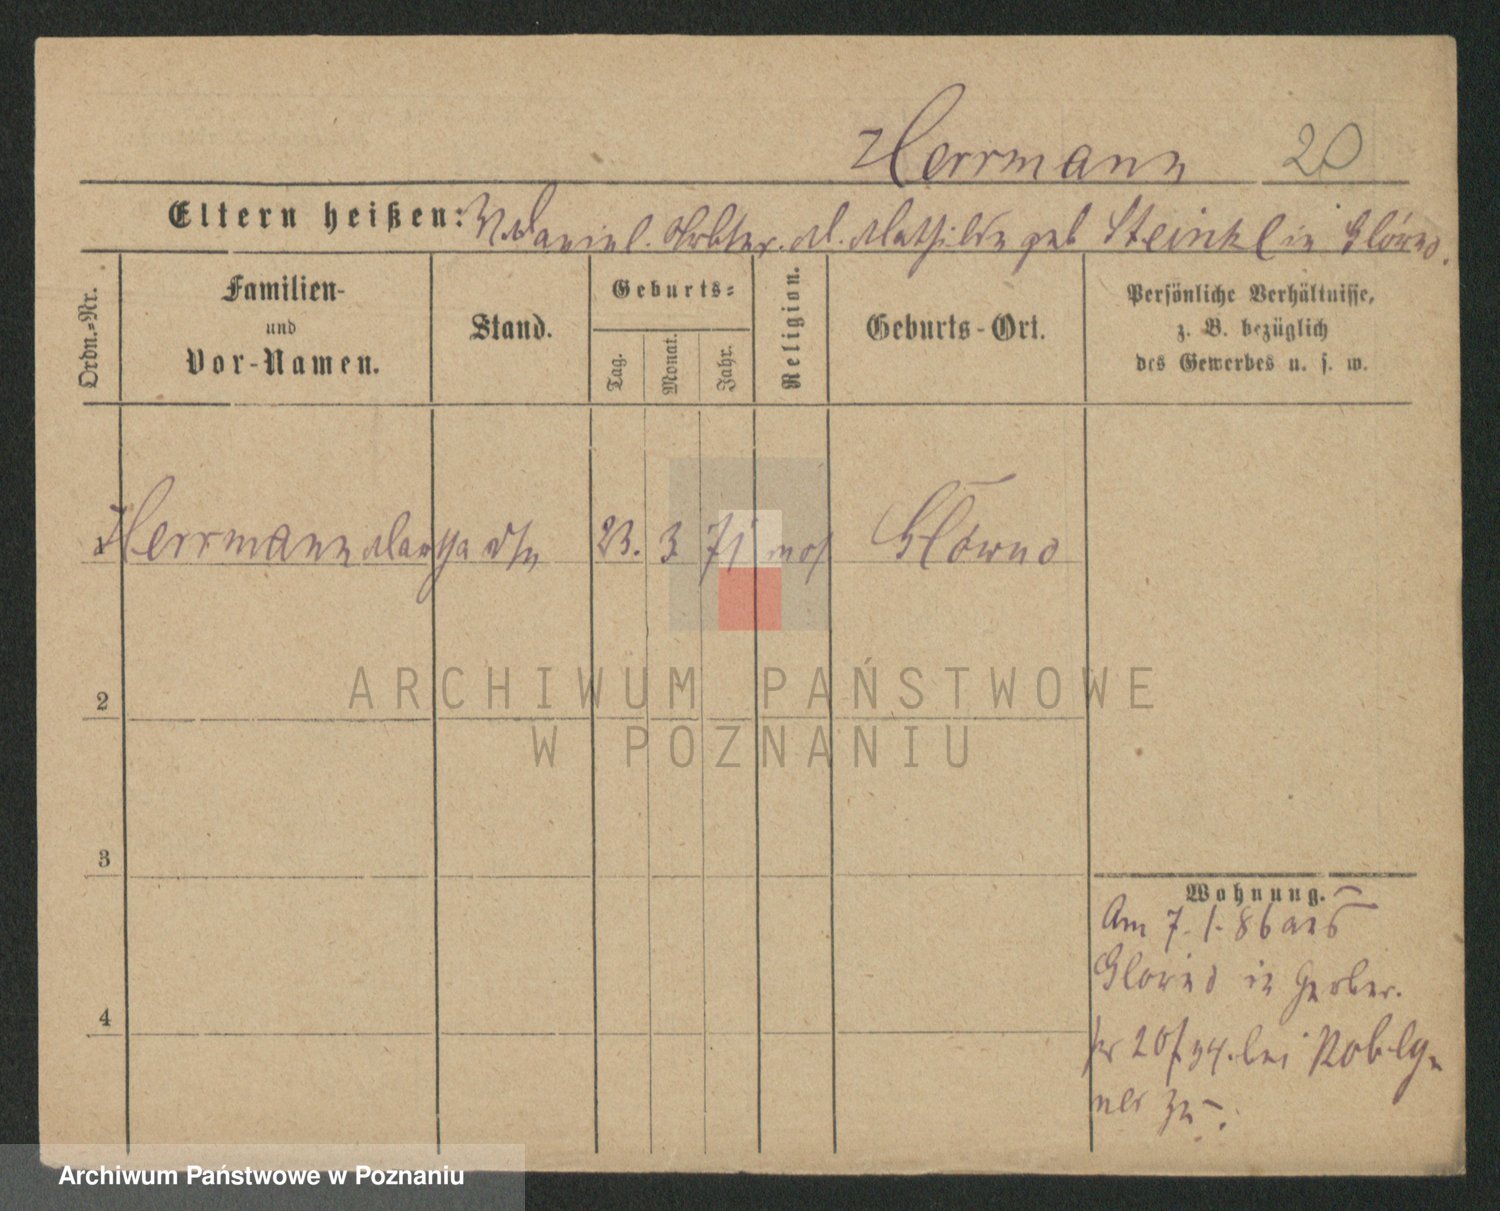 Herrmann 20
Eltern heißen: V. Daniel. Arbter. M. Mathilde geb Steinke in Glówno.
Ordn.-Nr.
Familien-
und
Vor-Namen.
Stand.
Geburts-
Tag.
Monat.
Jahr.
Religion.
Geburts-Ort.
Persönliche Verhältnisse,
z. B. bezüglich
des Gewerbes u. s. w.
1 Herrmann Martha 23. 3 71 mos Glówno
2
3
4
Wohnung.
Am 7. 1. 86 aus
Glowno in Gerber.
str 20 bei
zu.
ARCHIWUM PAŃSTWOWE
W POZNANIU
Archiwum Państwowe w Poznaniu